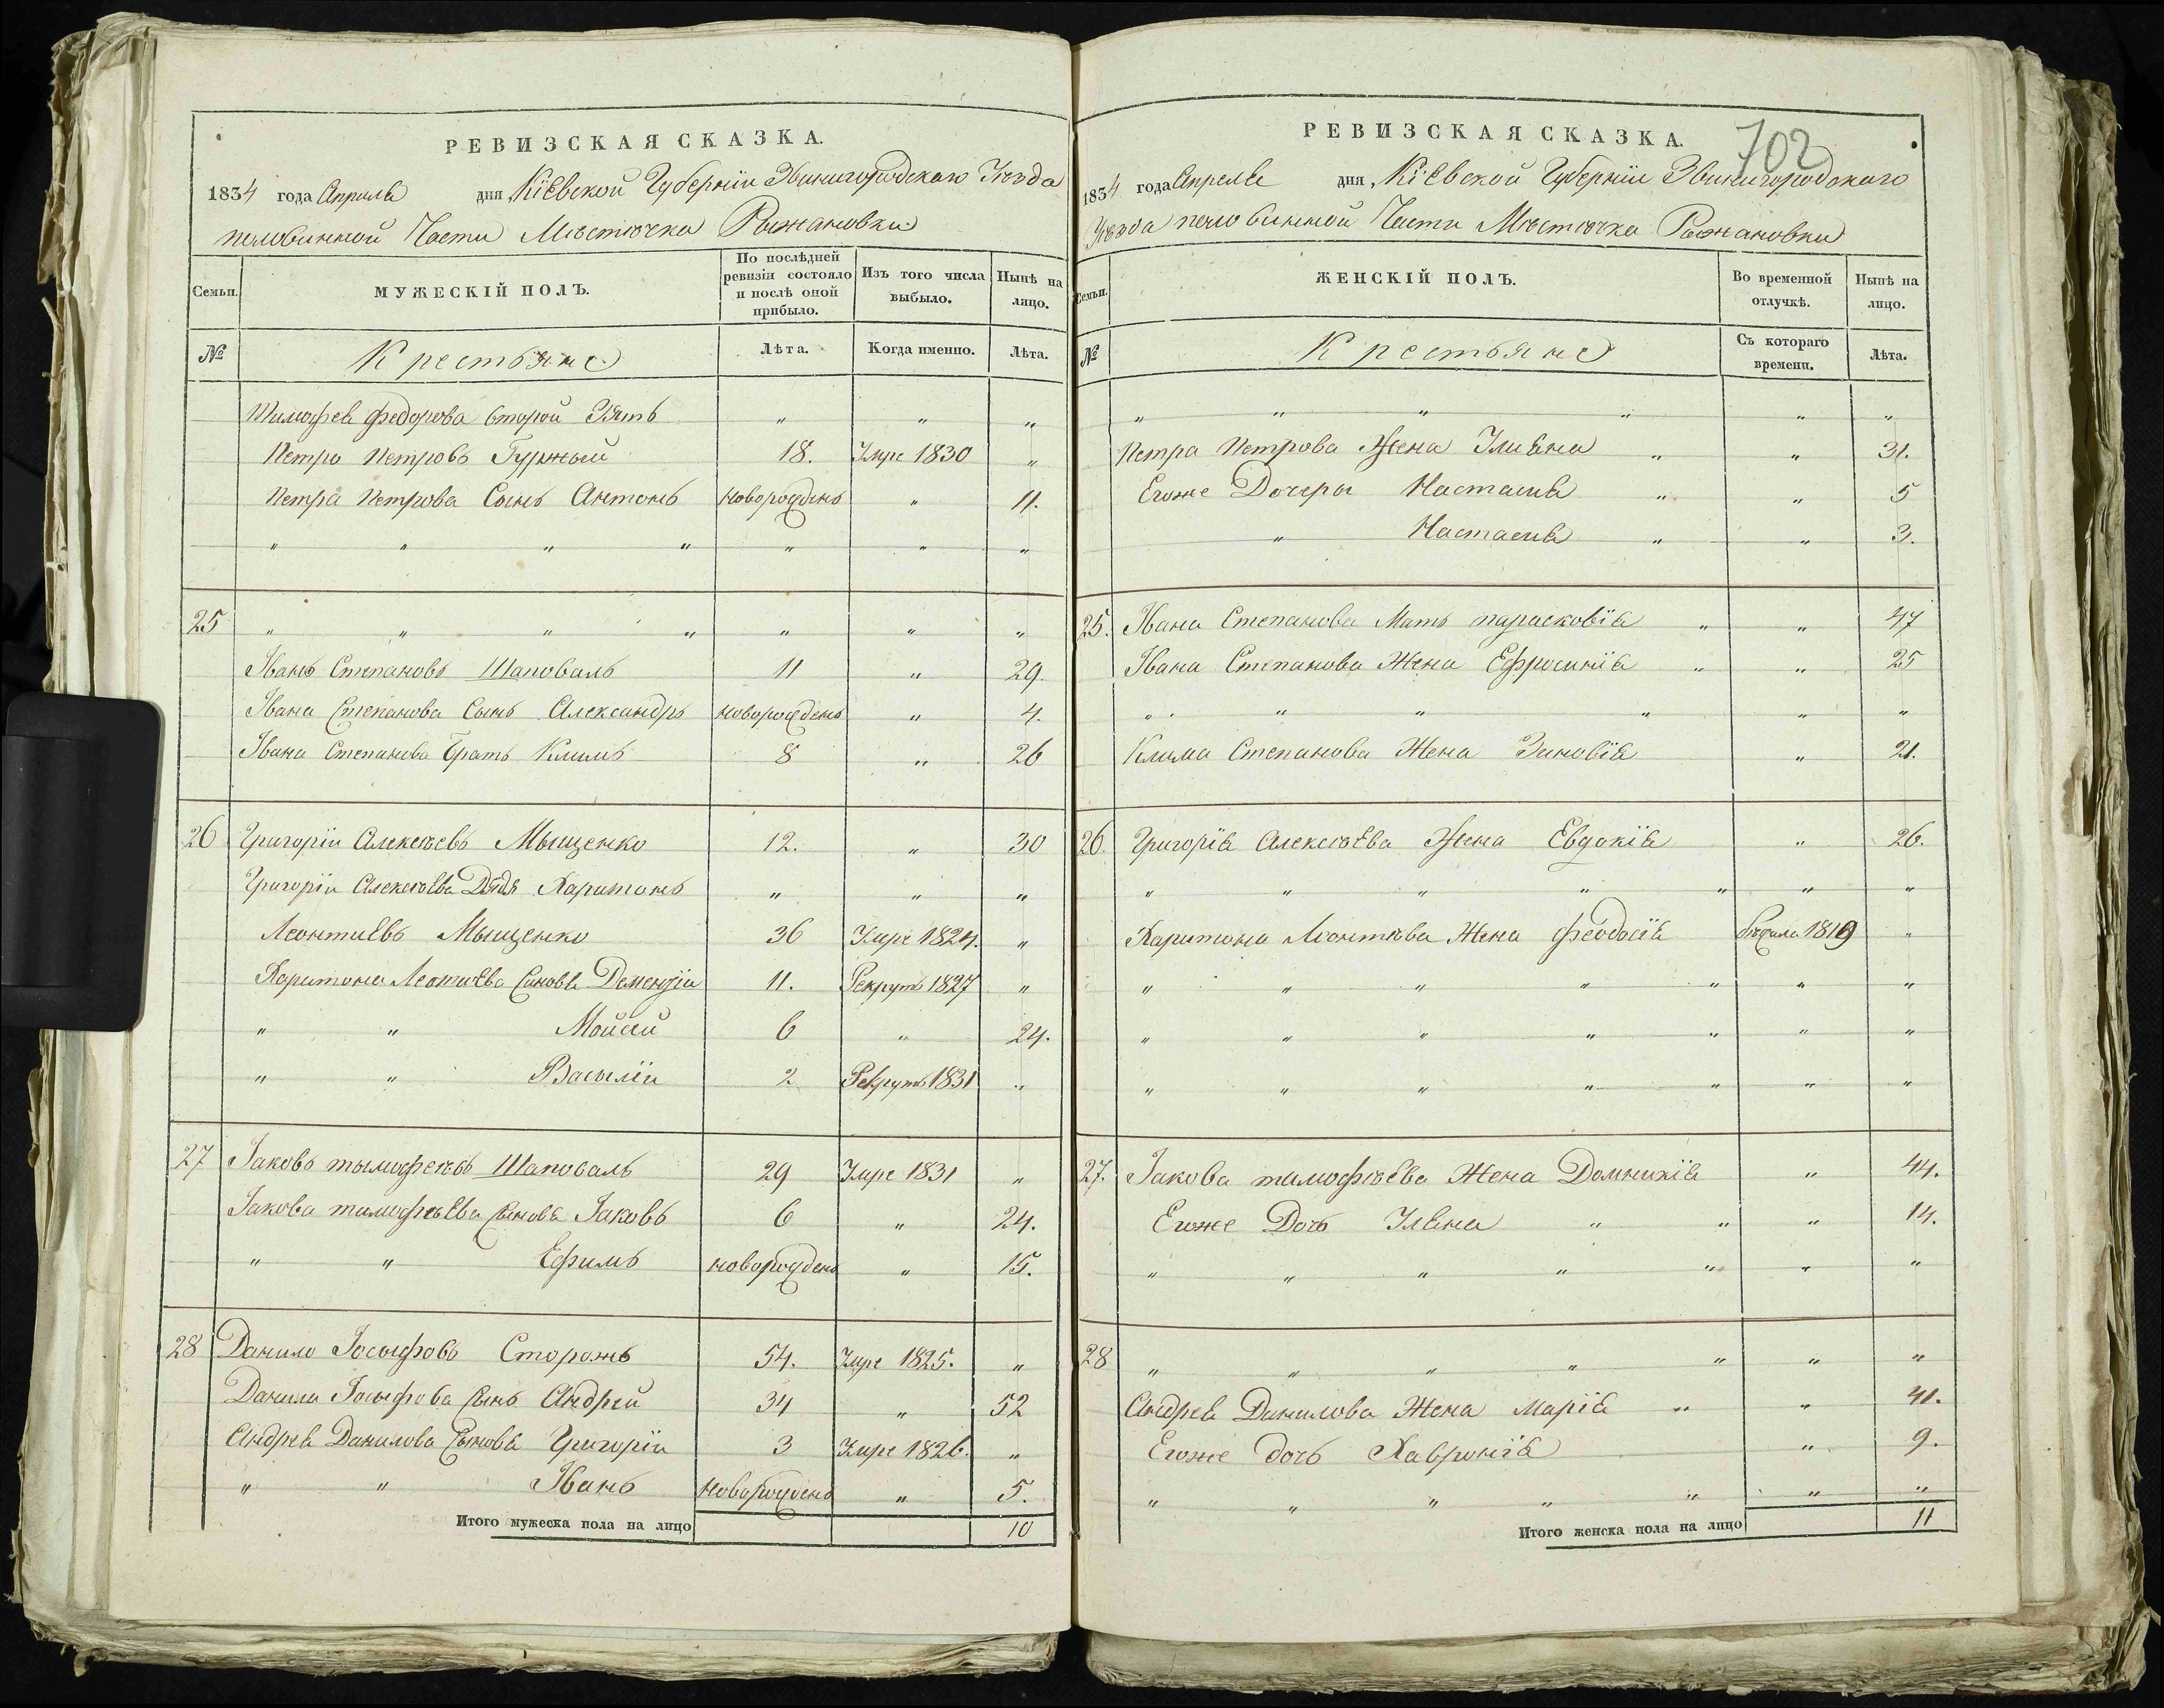 РЕВИЗСКАЯ СКАЗКА.
1834 года Апрѣля дня Кіевской Губерніи Звинигородскаго Уѣзда
половинной Части Мѣстѣчка Рыжановки
Семьи.
МУЖЕСКІЙ ПОЛЪ.
По послѣдней ревизіи состояло и послѣ оной прибыло.
Изъ того числа выбыло.
Нынѣ на лицо.
№
Крестьяне
Лѣта.
Когда именно.
Лѣта.
Тимофея Федорова второй Зять " " "
Петро Петровъ Гуржый 18. Умре 1830 "
Петра Петрова Сынъ Антонъ новорожденъ " 11.
" " " " " " "
25 " " " " " " "
Іванъ Степановъ Шаповалъ 11 " 29.
Івана Степанова Сынъ Александръ новорожденъ " 4.
Івана Степанова Братъ Климъ 8 " 26
26 Григорій Алексѣевъ Мыщенко 12. " 30
Григорія Алексѣева Дядя Харитонъ " " "
Леонтиевъ Мыщенко 36 Умре 1824. "
Харитона Леонтиева Синовя Дементіи 11. Рекрутъ 1827 "
" " Мойсей 6 " 24.
" " Васылій 2 Рекрутъ 1831 "
27 Іаковъ тымофеевъ Шаповалъ 29 Умре 1831 "
Іакова тимофѣева Сынова Іаковъ 6 " 24.
" " Ефимъ новорожденъ " 15.
28 Данило Іосыфовъ Сторожъ 54. Умре 1825. "
Данила Іосыфова Сынъ Андрей 34 " 52
Андрея Данилова Сыновя Григорій 3 Умре 1826. "
" " Іванъ новорожденъ " 5.
Итого мужеска пола на лицо 10
702
РЕВИЗСКАЯ СКАЗКА.
1834 года Апреля дня Кіевской Губерніи Звинигородскаго
Уѣзда половинной Части Мѣстѣчка Рыжановки
Семьи.
ЖЕНСКІЙ ПОЛЪ.
Во временной отлучкѣ.
Нынѣ на лицо.
№
Крестьяне
Съ котораго времени.
Лѣта.
" " " " " "
Петра Петрова Жена Улияна " " 31.
Егоже Дочеры Настасия " " 5
" Настасия " " 3.
25. Івана Степанова Мать парасковія " " 47
Івана Степанова Жена Ефросинія " " 25
" " " " " "
Клима Степанова Жена Зиновія " 21.
26. Григорія Алексѣева Жена Евдокія " 26.
" " " " " " "
Харитона Леонтьева Жена Феодосія бѣжала 1819 "
" " " " " " "
" " " " " " "
" " " " " " "
27. Іакова тимофѣева Жена Домникія " 44.
Егоже Дочь Уляна " " " 14.
" " " " " " "
28 " " " " " " "
Андрея Данилова Жена Марія " " 41.
Егоже дочь Хавронія " 9.
" " " " " " "
Итого женска пола на лицо 11